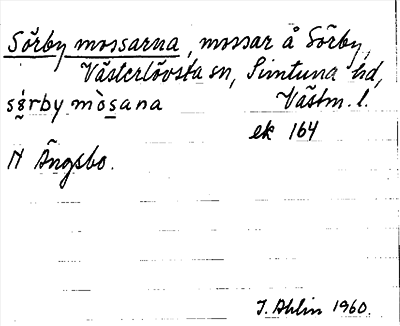 Sörby mossarna, mossar å Sörby,
Västerlövsta sn, Simtuna hd,
sɛ̀rby mòsana Västm. l.
ek 164
N Ängsbo.
I. Ahlin 1960.